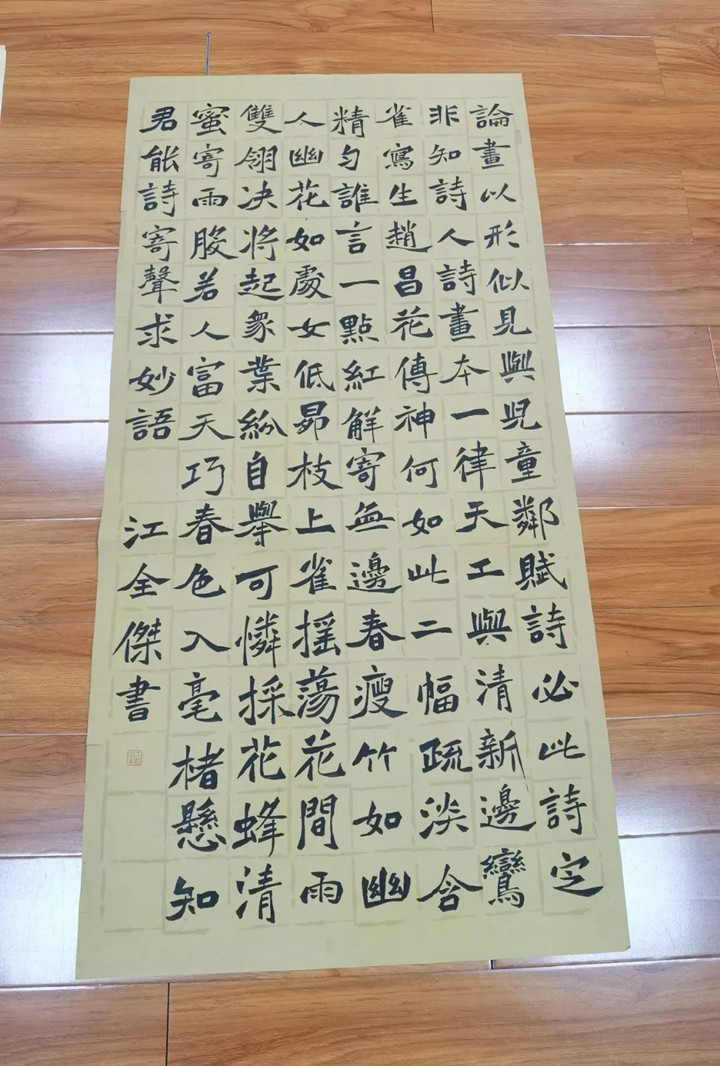 論畫以形似見與兒童鄰賦詩必此詩定
非知詩人詩畫本一律天工與清新邊鸞
雀寫生趙昌花傳神何如此二幅疏淡含
精勻誰言一點紅解寄無邊春瘦竹如幽
人幽花如處女低昂枝上雀搖蕩花間雨
雙翎决將起衆葉紛自舉可憐採花蜂清
蜜寄雨股若人富天巧春色入毫楮懸知
君能詩寄聲求妙語 江全傑書